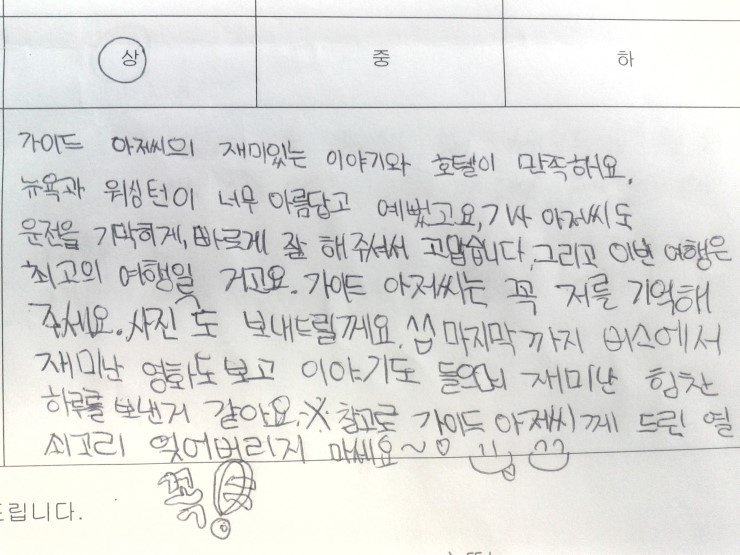 상 중 하
가이드 아저씨의 재미있는 이야기와 호텔이 만족해요.
뉴욕과 워싱턴이 너무 아름답고 예뻤고요, 기사 아저씨도
운전을 기막히게, 빠르게 잘 해주셔서 고맙습니다. 그리고 이번 여행은
최고의 여행일 거고요. 가이드 아저씨는 꼭 저를 기억해
주세요. 사진도 보내드릴께요. 마지막까지 버스에서
재미난 영화도 보고 이야기도 들으며 재미난 힘찬
하루를 보낸거 같아요. ※ 참고로 가이드 아저씨께 드린 열
쇠고리 잊어버리지 마세요~
꼭!
드립니다.